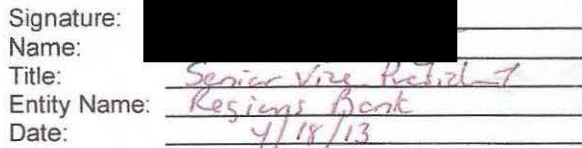 Signature:
Name:
Title: Senior Vice President
Entity Name: Regions Bank
Date: 4/18/13